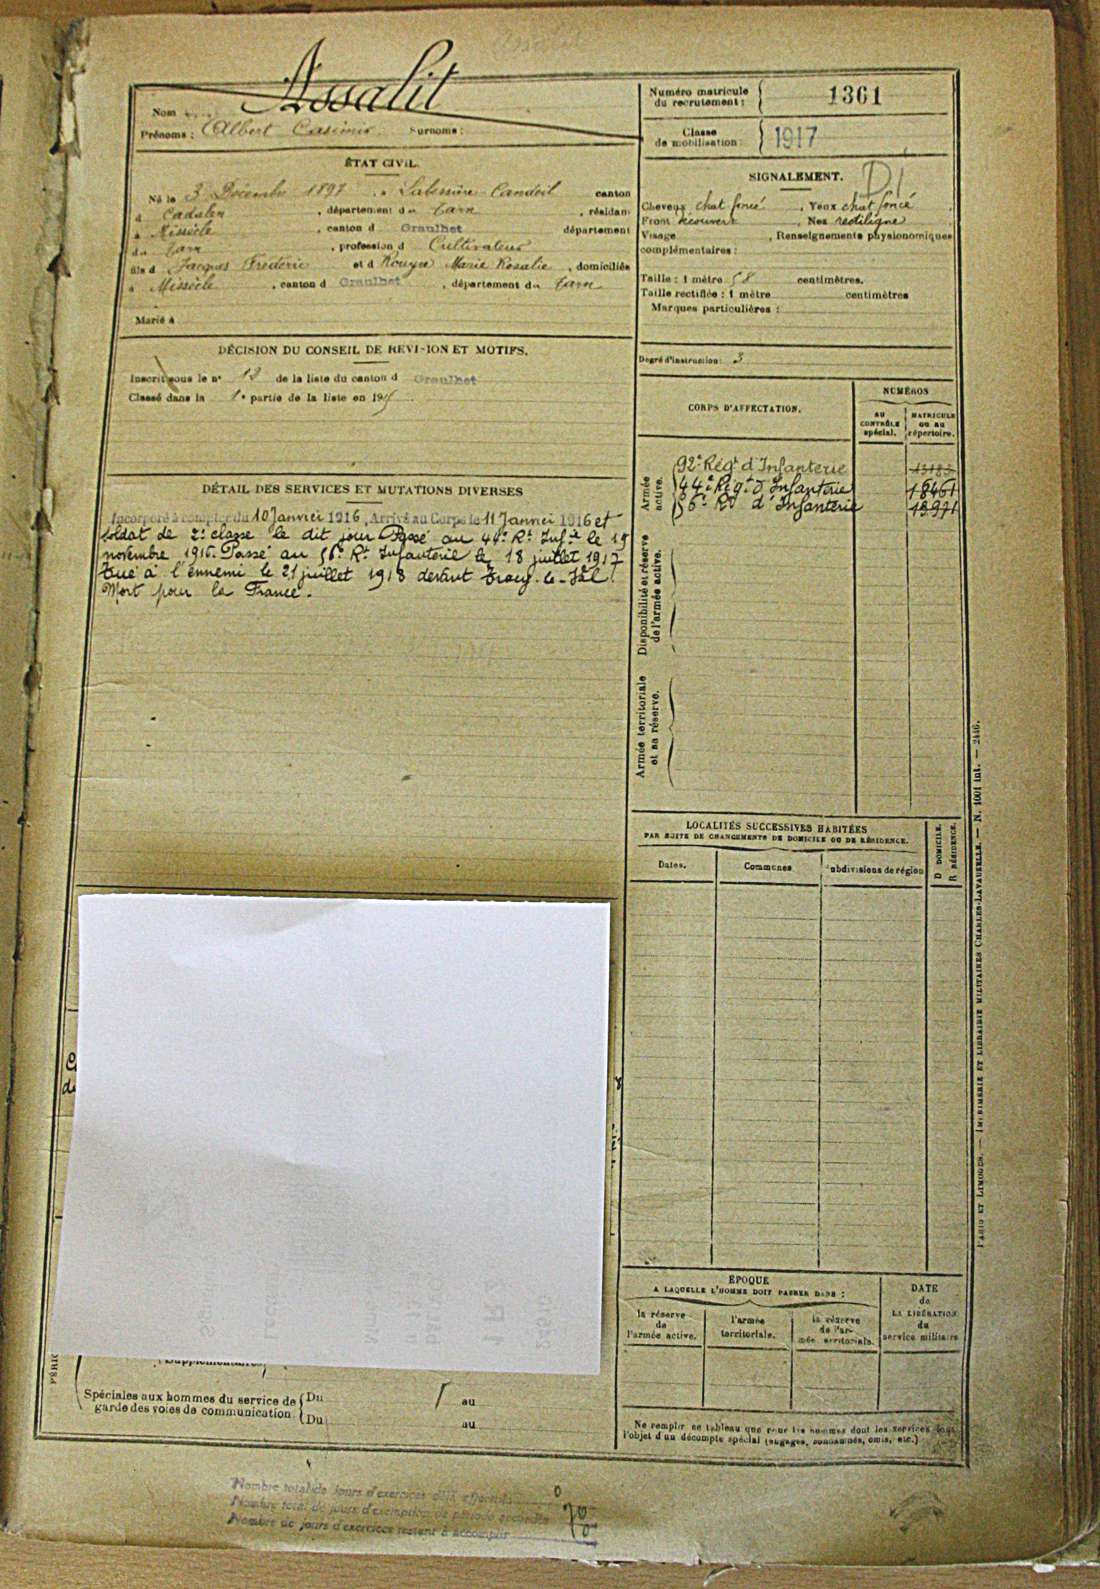 Assalit
Nom
Prénoms : Albert Casimir Surnoms :
Numéro matricule
du recrutement : 1361
Classe
de mobilisation : 1917
ÉTAT CIVIL.
Né le 3 Décembre 1897, à Labessière Candeil canton
d Cadalen, département du Tarn, résidant
à Missècle, canton d Graulhet département
du Tarn, profession d Cultivateur
fils d Jacques Frédéric et d Rouyre Marie Rosalie, domiciliés
à Missècle, canton d Graulhet, département du Tarn
Marié à
SIGNALEMENT.
Cheveux chat foncé, Yeux chat foncé,
Front découvert, Nez rectiligne
Visage, Renseignements physionomiques
complémentaires :
Taille : 1 mètre 58 centimètres.
Taille rectifiée : 1 mètre centimètres
Marques particulières :
Degré d'instruction : 3
DÉCISION DU CONSEIL DE REVI-ION ET MOTIFS.
Inscrit sous le n° 13 de la liste du canton d Graulhet
Classé dans la 1e partie de la liste en 191
DÉTAIL DES SERVICES ET MUTATIONS DIVERSES
Incorporé à compter du 10 Janvier 1916, Arrivé au Corps le 11 Janvier 1916 et
soldat de 2e classe le dit jour Passé au 44e Rt Infie le 19
novembre 1916. Passé au 56e Rt Infanterie le 18 juillet 1917
Tué à l'ennemi le 21 juillet 1918 devant Tracy-le-Val.
Mort pour la France.
CORPS D'AFFECTATION.
NUMÉROS
AU
CONTRÔLE
spécial.
MATRICULE
OU AU
répertoire.
Armée
active.
92e Régt d'Infanterie
44e Régt d'Infanterie 18461
56e Rt d'Infanterie 13971
Disponibilité et réserve
de l'armée active.
Armée territoriale
et sa réserve.
LOCALITÉS SUCCESSIVES HABITÉES
PAR SUITE DE CHANGEMENTS DE DOMICILE OU DE RÉSIDENCE.
Dates.
Communes
Subdivisions de région
D DOMICILE.
R RÉSIDENCE.
ÉPOQUE
A LAQUELLE L'HOMME DOIT PASSER DANS :
la réserve
de
l'armée active.
l'armée
territoriale.
la réserve
de l'ar-
mée territoriale.
DATE
de
LA LIBÉRATION
du
service militaire
Ne remplir ce tableau que pour les hommes dont les services font
l'objet d'un décompte spécial (engagés, condamnés, omis, etc.)
Supplémentaires
Spéciales aux hommes du service de
garde des voies de communication
Du au
Du au
Nombre total de jours d'exercices déjà effectués 0
Nombre total de jours d'exemption de période accordés
Nombre de jours d'exercices restant à accomplir
PARIS ET LIMOGES. — IMPRIMERIE ET LIBRAIRIE MILITAIRES CHARLES-LAVAUZELLE. — N. 1001 int. — 2446.